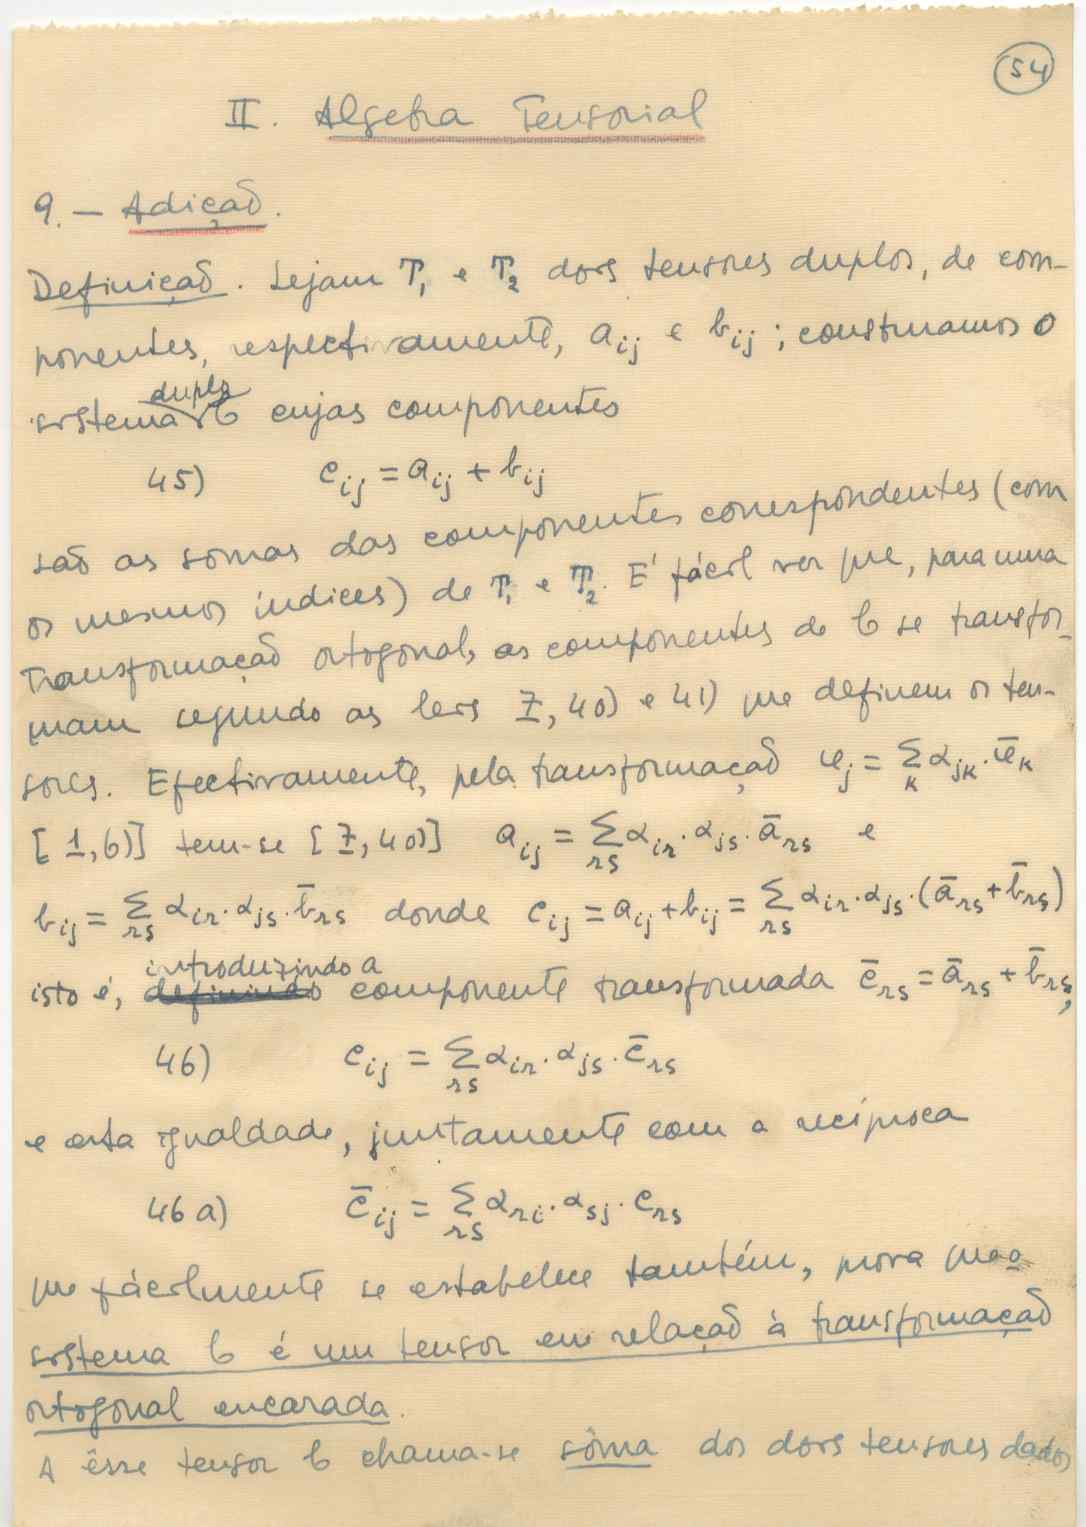 54
II. Algebra Tensorial
9. — Adição.
Definição. Sejam T₁ e T₂ dois tensores duplos, de com-
ponentes, respectivamente, aᵢⱼ e bᵢⱼ ; construamos o
duplo
sistema C cujas componentes
45) cᵢⱼ = aᵢⱼ + bᵢⱼ
são as somas das componentes correspondentes (com
os mesmos índices) de T₁ e T₂. É fácil ver que, para uma
transformação ortogonal, as componentes de C se transfor-
mam segundo as leis 7, 40) e 41) que definem os ten-
sores. Efectivamente, pela transformação uⱼ = Σₖ αⱼₖ.ūₖ
[1,6)] tem-se [7,40)] aᵢⱼ = Σᵣₛ αᵢᵣ.αⱼₛ.āᵣₛ e
bᵢⱼ = Σᵣₛ αᵢᵣ.αⱼₛ.b̄ᵣₛ donde cᵢⱼ = aᵢⱼ + bᵢⱼ = Σᵣₛ αᵢᵣ.αⱼₛ.(āᵣₛ + b̄ᵣₛ)
introduzindo a
isto é, definindo componente transformada c̄ᵣₛ = āᵣₛ + b̄ᵣₛ,
46) cᵢⱼ = Σᵣₛ αᵢᵣ.αⱼₛ.c̄ᵣₛ
e esta igualdade, juntamente com a recíproca
46 a) c̄ᵢⱼ = Σᵣₛ αᵣᵢ.αₛⱼ.cᵣₛ
que fácilmente se estabelece também, prova que o
sistema C é um tensor em relação à transformação
ortogonal encarada.
A êsse tensor C chama-se sôma dos dois tensores dados